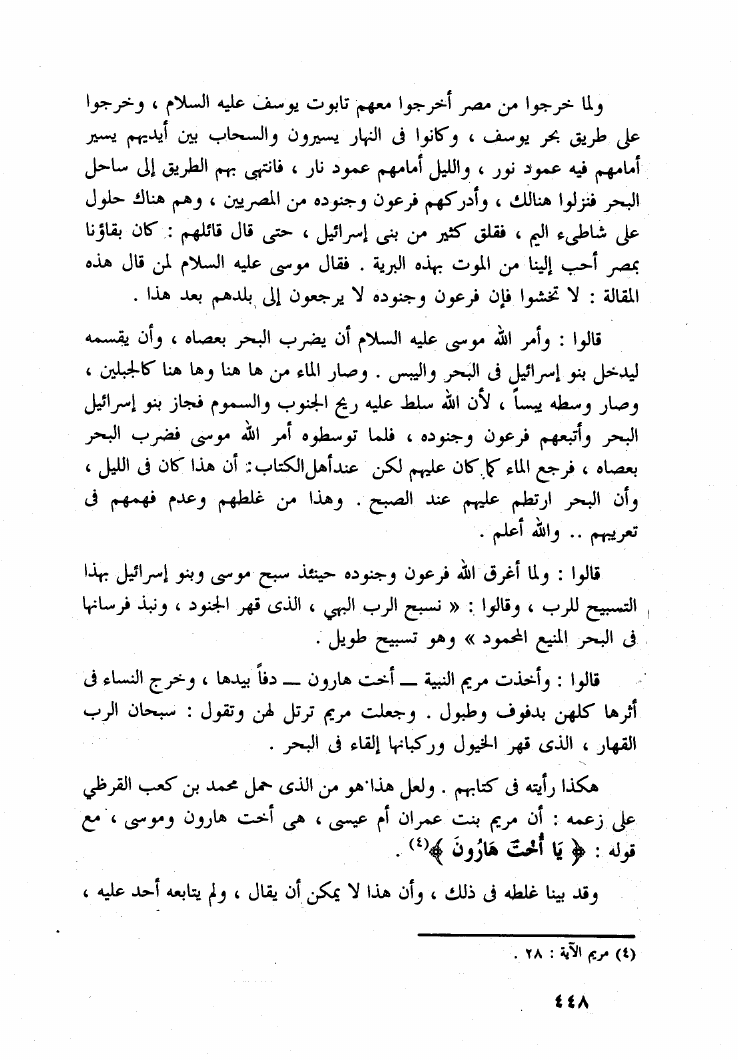 ولما خرجوا من مصر أخرجوا معهم تابوت يوسف عليه السلام ، وخرجوا
على طريق بحر يوسف ، وكانوا فى النهار يسيرون والسحاب بين أيديهم يسير
أمامهم فيه عمود نور ، والليل أمامهم عمود نار ، فانتهى بهم الطريق إلى ساحل
البحر فنزلوا هنالك ، وأدركهم فرعون وجنوده من المصريين ، وهم هناك حلول
على شاطىء اليم ، فقلق كثير من بنى إسرائيل ، حتى قال قائلهم : كان بقاؤنا
بمصر أحب إلينا من الموت بهذه البرية . فقال موسى عليه السلام لمن قال هذه
المقالة : لا تخشوا فإن فرعون وجنوده لا يرجعون إلى بلدهم بعد هذا .
قالوا : وأمر الله موسى عليه السلام أن يضرب البحر بعصاه ، وأن يقسمه
ليدخل بنو إسرائيل فى البحر واليبس . وصار الماء من ها هنا وها هنا كالجبلين ،
وصار وسطه يبساً ، لأن الله سلط عليه ريح الجنوب والسموم فجاز بنو إسرائيل
البحر وأتبعهم فرعون وجنوده ، فلما توسطوه أمر الله موسى فضرب البحر
بعصاه ، فرجع الماء كما كان عليهم لكن عند أهل الكتاب : أن هذا كان فى الليل ،
وأن البحر ارتطم عليهم عند الصبح . وهذا من غلطهم وعدم فهمهم فى
تعريبهم .. والله أعلم .
قالوا : ولما أغرق الله فرعون وجنوده حينئذ سبح موسى وبنو إسرائيل بهذا
التسبيح للرب ، وقالوا : « نسبح الرب البهي ، الذى قهر الجنود ، ونبذ فرسانها
فى البحر المنيع المحمود » وهو تسبيح طويل .
قالوا : وأخذت مريم النبية ــ أخت هارون ــ دفاً بيدها ، وخرج النساء فى
أثرها كلهن بدفوف وطبول . وجعلت مريم ترتل لهن وتقول : سبحان الرب
القهار ، الذى قهر الخيول وركبانها إلقاء فى البحر .
هكذا رأيته فى كتابهم . ولعل هذا هو من الذى حمل محمد بن كعب القرظي
على زعمه : أن مريم بنت عمران أم عيسى ، هى أخت هارون وموسى ، مع
قوله : ﴿ يَا أُخْتَ هَارُونَ ﴾(٤) .
وقد بينا غلطه فى ذلك ، وأن هذا لا يمكن أن يقال ، ولم يتابعه أحد عليه ،
(٤) مريم الآية : ٢٨ .
٤٤٨